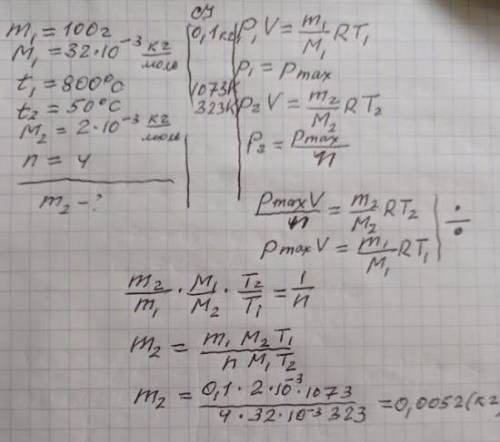 m₁ = 100г
M₁ = 32·10⁻³ кг/моль
t₁ = 800°C
t₂ = 50°C
M₂ = 2·10⁻³ кг/моль
n = 4
m₂ - ?
СИ
0,1кг
1073K
323K
P₁V = m₁/M₁ RT₁
P₁ = Pmax
P₂V = m₂/M₂ RT₂
P₂ = Pmax/n
PmaxV/n = m₂/M₂ RT₂
PmaxV = m₁/M₁ RT₁
÷
m₂/m₁ · M₁/M₂ · T₂/T₁ = 1/n
m₂ = m₁ M₂ T₁/n M₁ T₂
m₂ = 0,1·2·10⁻³·1073/4·32·10⁻³ 323 = 0,0052(кг